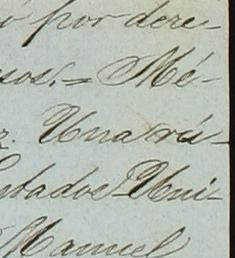 por dere-
sos.= Mé-
Una rú-
Estados Uni-
Manuel